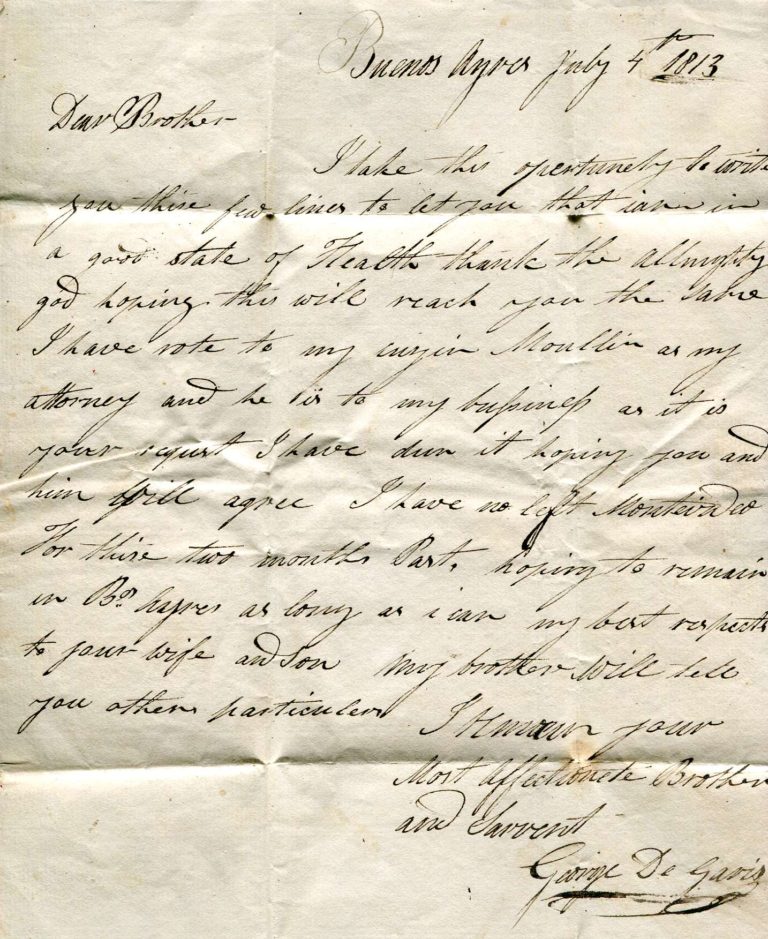 Buenos Ayres July 4th 1813
Dear Brother
I take this opertunety to write
you thise few lines to let you that iam in
a good state of Health thank the Allmighty
god hoping this will reach you the same
I have rote to my cuzin Moullin as my
attorney and he is to my bussiness as it is
your request I have dun it hoping you and
him Will agree I have no left Montevadeo
For thise two months Past, hoping to remain
in Bs Ayres as long as i can my best respects
to your wife and son My brother Will tell
you others particulers
I Remain your
Most Affectionete Brother
and Sarvent
George De Garis